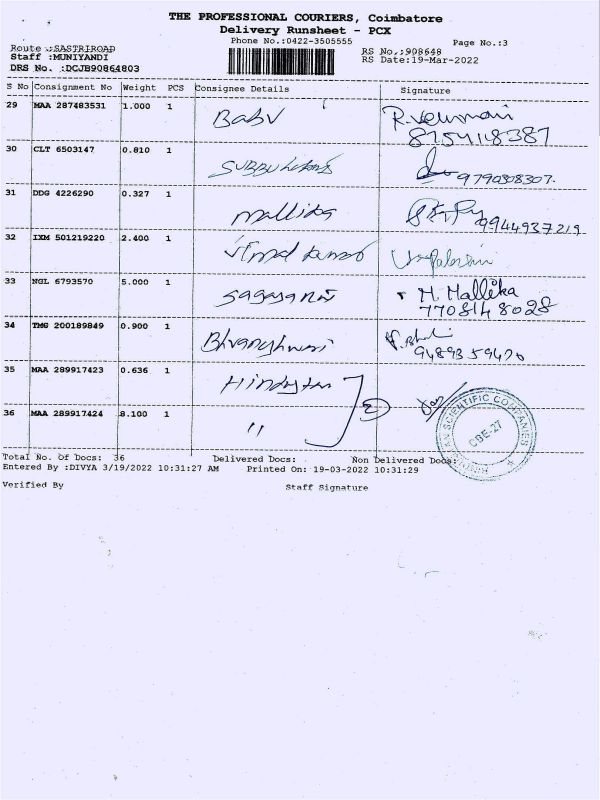 THE PROFESSIONAL COURIERS, Coimbatore
Delivery Runsheet - PCX
Phone No.:0422-3505555
Page No.:3
Route :SASTRIROAD
Staff :MUNIYANDI
DRS No. :DCJB90864803
RS No.:908648
RS Date:19-Mar-2022
S No Consignment No Weight PCS Consignee Details Signature
29 MAA 287483531 1.000 1 Babu R.
8754118387
30 CLT 6503147 0.810 1 9790808307.
31 DDG 4226290 0.327 1 mallika 9944937219
32 IXM 501219220 2.400 1
33 NGL 6793570 5.000 1 M. Mallika
7708148028
34 TMG 200189849 0.900 1
9489359470
35 MAA 289917423 0.636 1 Hindustan
36 MAA 289917424 8.100 1 "
SCIENTIFIC COMPANIES
CBE-27
Total No. Of Docs: 36 Delivered Docs: Non Delivered Docs:
Entered By :DIVYA 3/19/2022 10:31:27 AM Printed On: 19-03-2022 10:31:29
Verified By Staff Signature